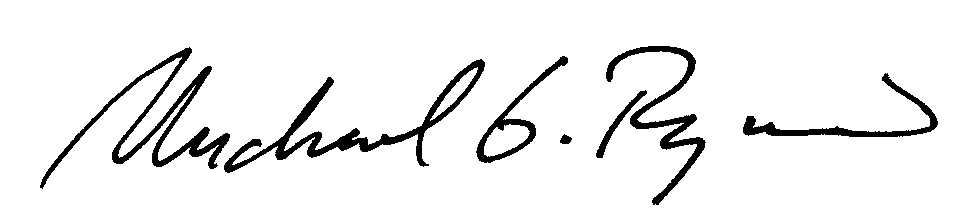 Michael G. Ryan